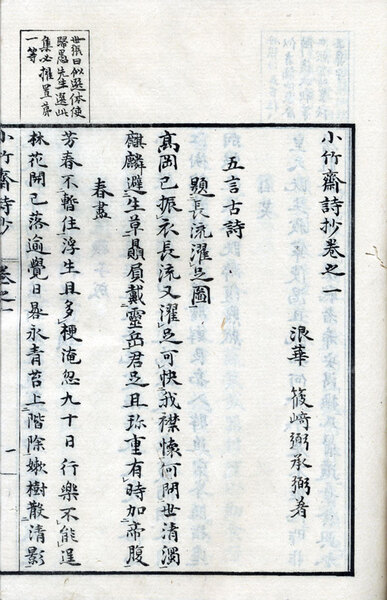 小竹齋詩抄卷之一
浪華 篠﨑弼承弼著
五言古詩
題長流濯足圖
高岡已振衣長流又濯足可快我襟懷何問世清濁
麒麟避生草贔屓戴靈岳君足且珎重有時加帝腹
春盡
芳春不暫住浮生且多梗淹忽九十日行樂不能逞
林花開已落逾覺日晷永青苔上階除嫩樹散清影
世張曰似選体使
歸愚先生選此
集必推置第
一等
小竹齋詩抄 卷之一 一